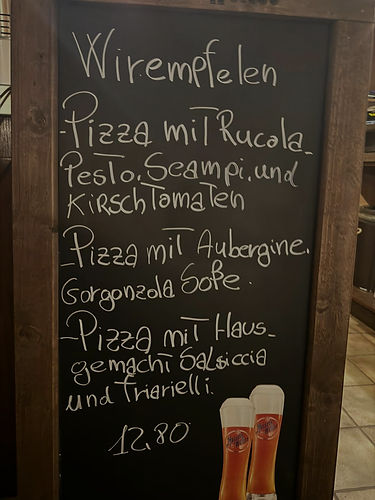 Wir empfelen
-Pizza mit Rucola_
Pesto. Scampi. und
Kirschtomaten
-Pizza mit Aubergine.
Gorgonzola Soße.
-Pizza mit Haus-
gemacht Salsiccia
und Friarielli.
12,80